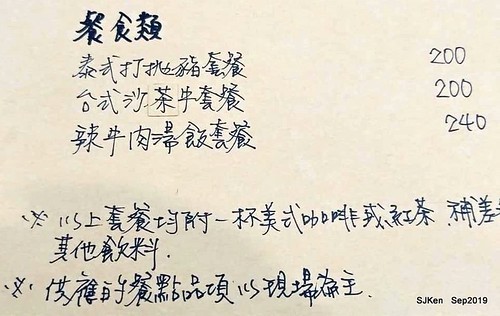 餐食類
泰式打拋豬套餐 200
台式沙茶牛套餐 200
辣牛肉湯飯套餐 240
※ 以上套餐均附一杯美式咖啡或紅茶、補差
其他飲料.
※ 供應的餐點品項以現場為主.
SJKen Sep2019